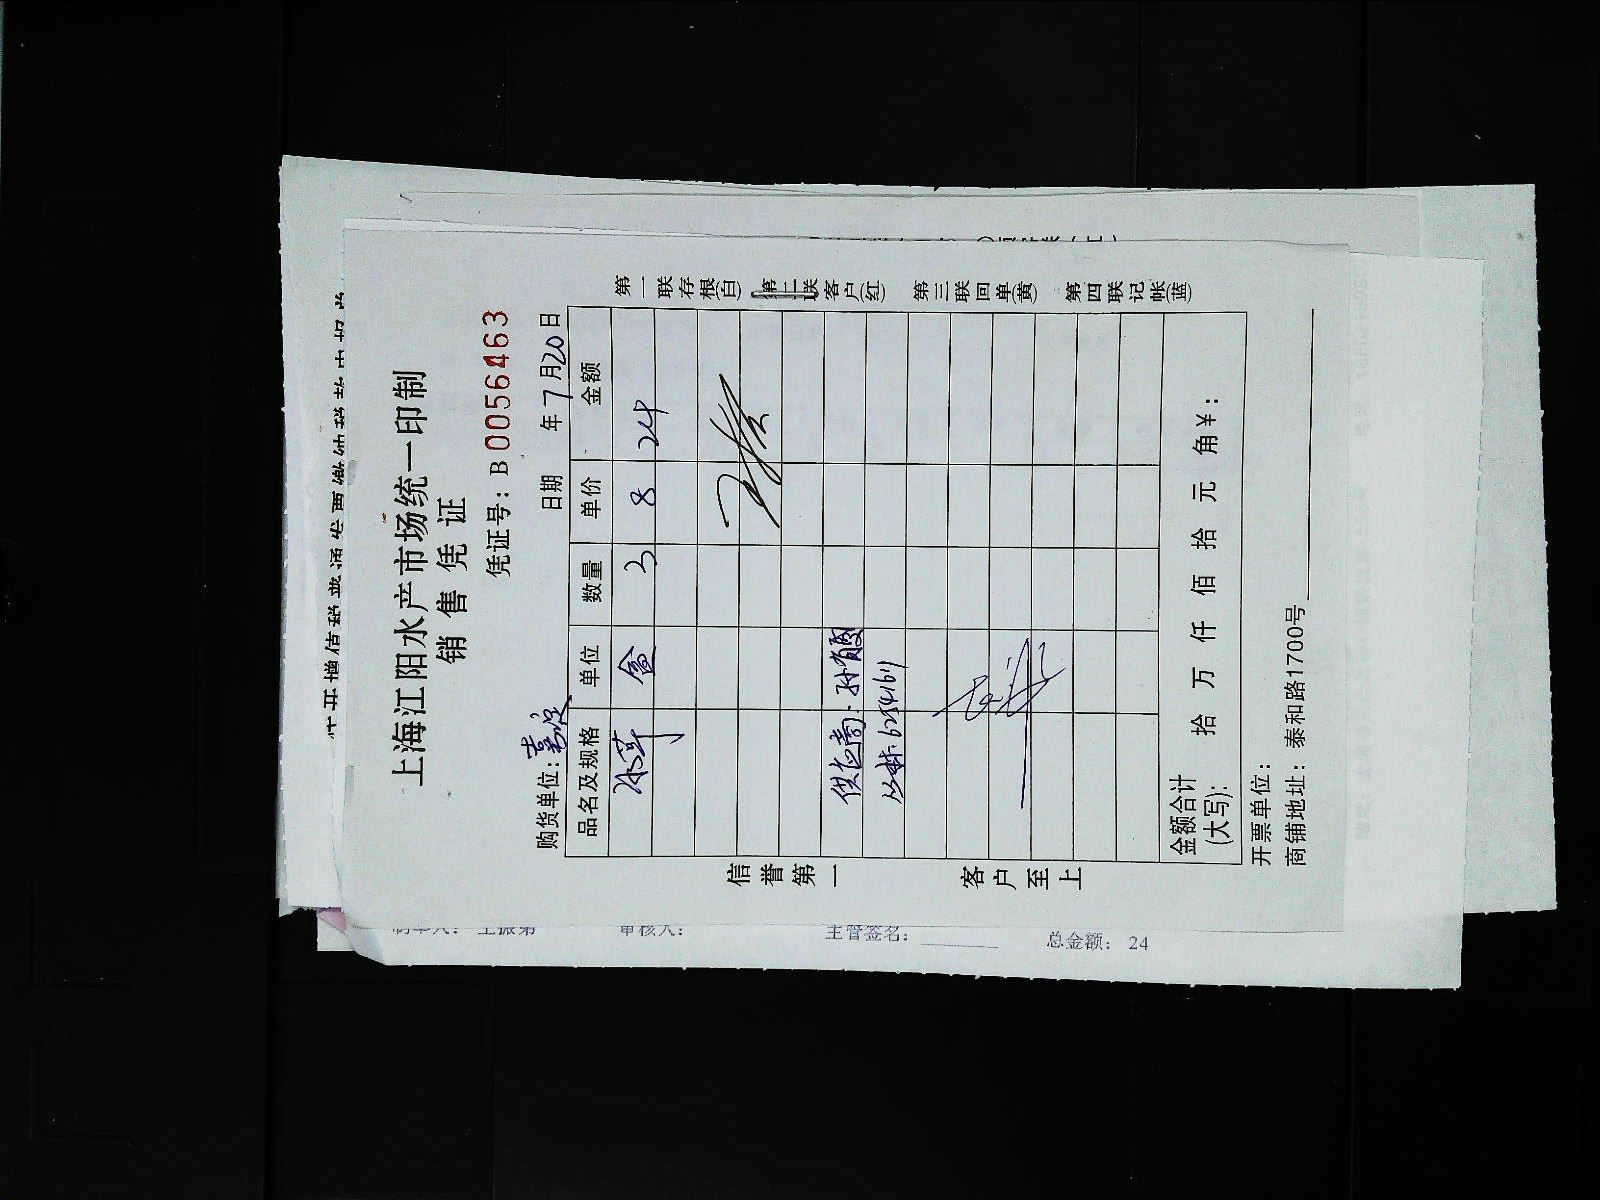 上海江阳水产市场统一印制
销售凭证
凭证号：B0056463
购货单位：嘉定 日期 年7月20日
品名及规格 单位 数量 单价 金额
盒 3 8 24
供应商：孙
金额合计
(大写): 拾 万 仟 佰 拾 元 角￥：
开票单位：
商铺地址：泰和路1700号
信誉第一 客户至上
第一联存根(白) 第二联客户(红) 第三联回单(黄) 第四联记帐(蓝)
审核人： 主管签名： 总金额：24